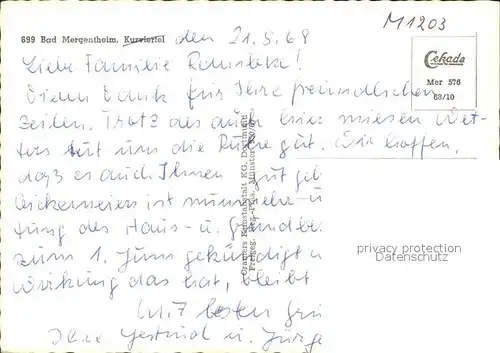 699 Bad Mergentheim, Kurviertel den 21.5.68
M1203
Cekade
Mer 576
63/10
Liebe Familie
Vielen Dank für Ihre freundlichen
Zeilen. Trotz des auch hier miesen Wet-
ters tut uns die Ruhe gut. Wir hoffen,
daß es auch Ihnen gut geh
ist nunmehr u
tung des Haus- u. Grundbe
zum 1. Juni gekündigt u
Wirkung das hat, bleibt
Mit besten Grü
Ihre Gertrud u. Jürge
Cramers Kunstanstalt KG, Dortmund
privacy protection
Datenschutz